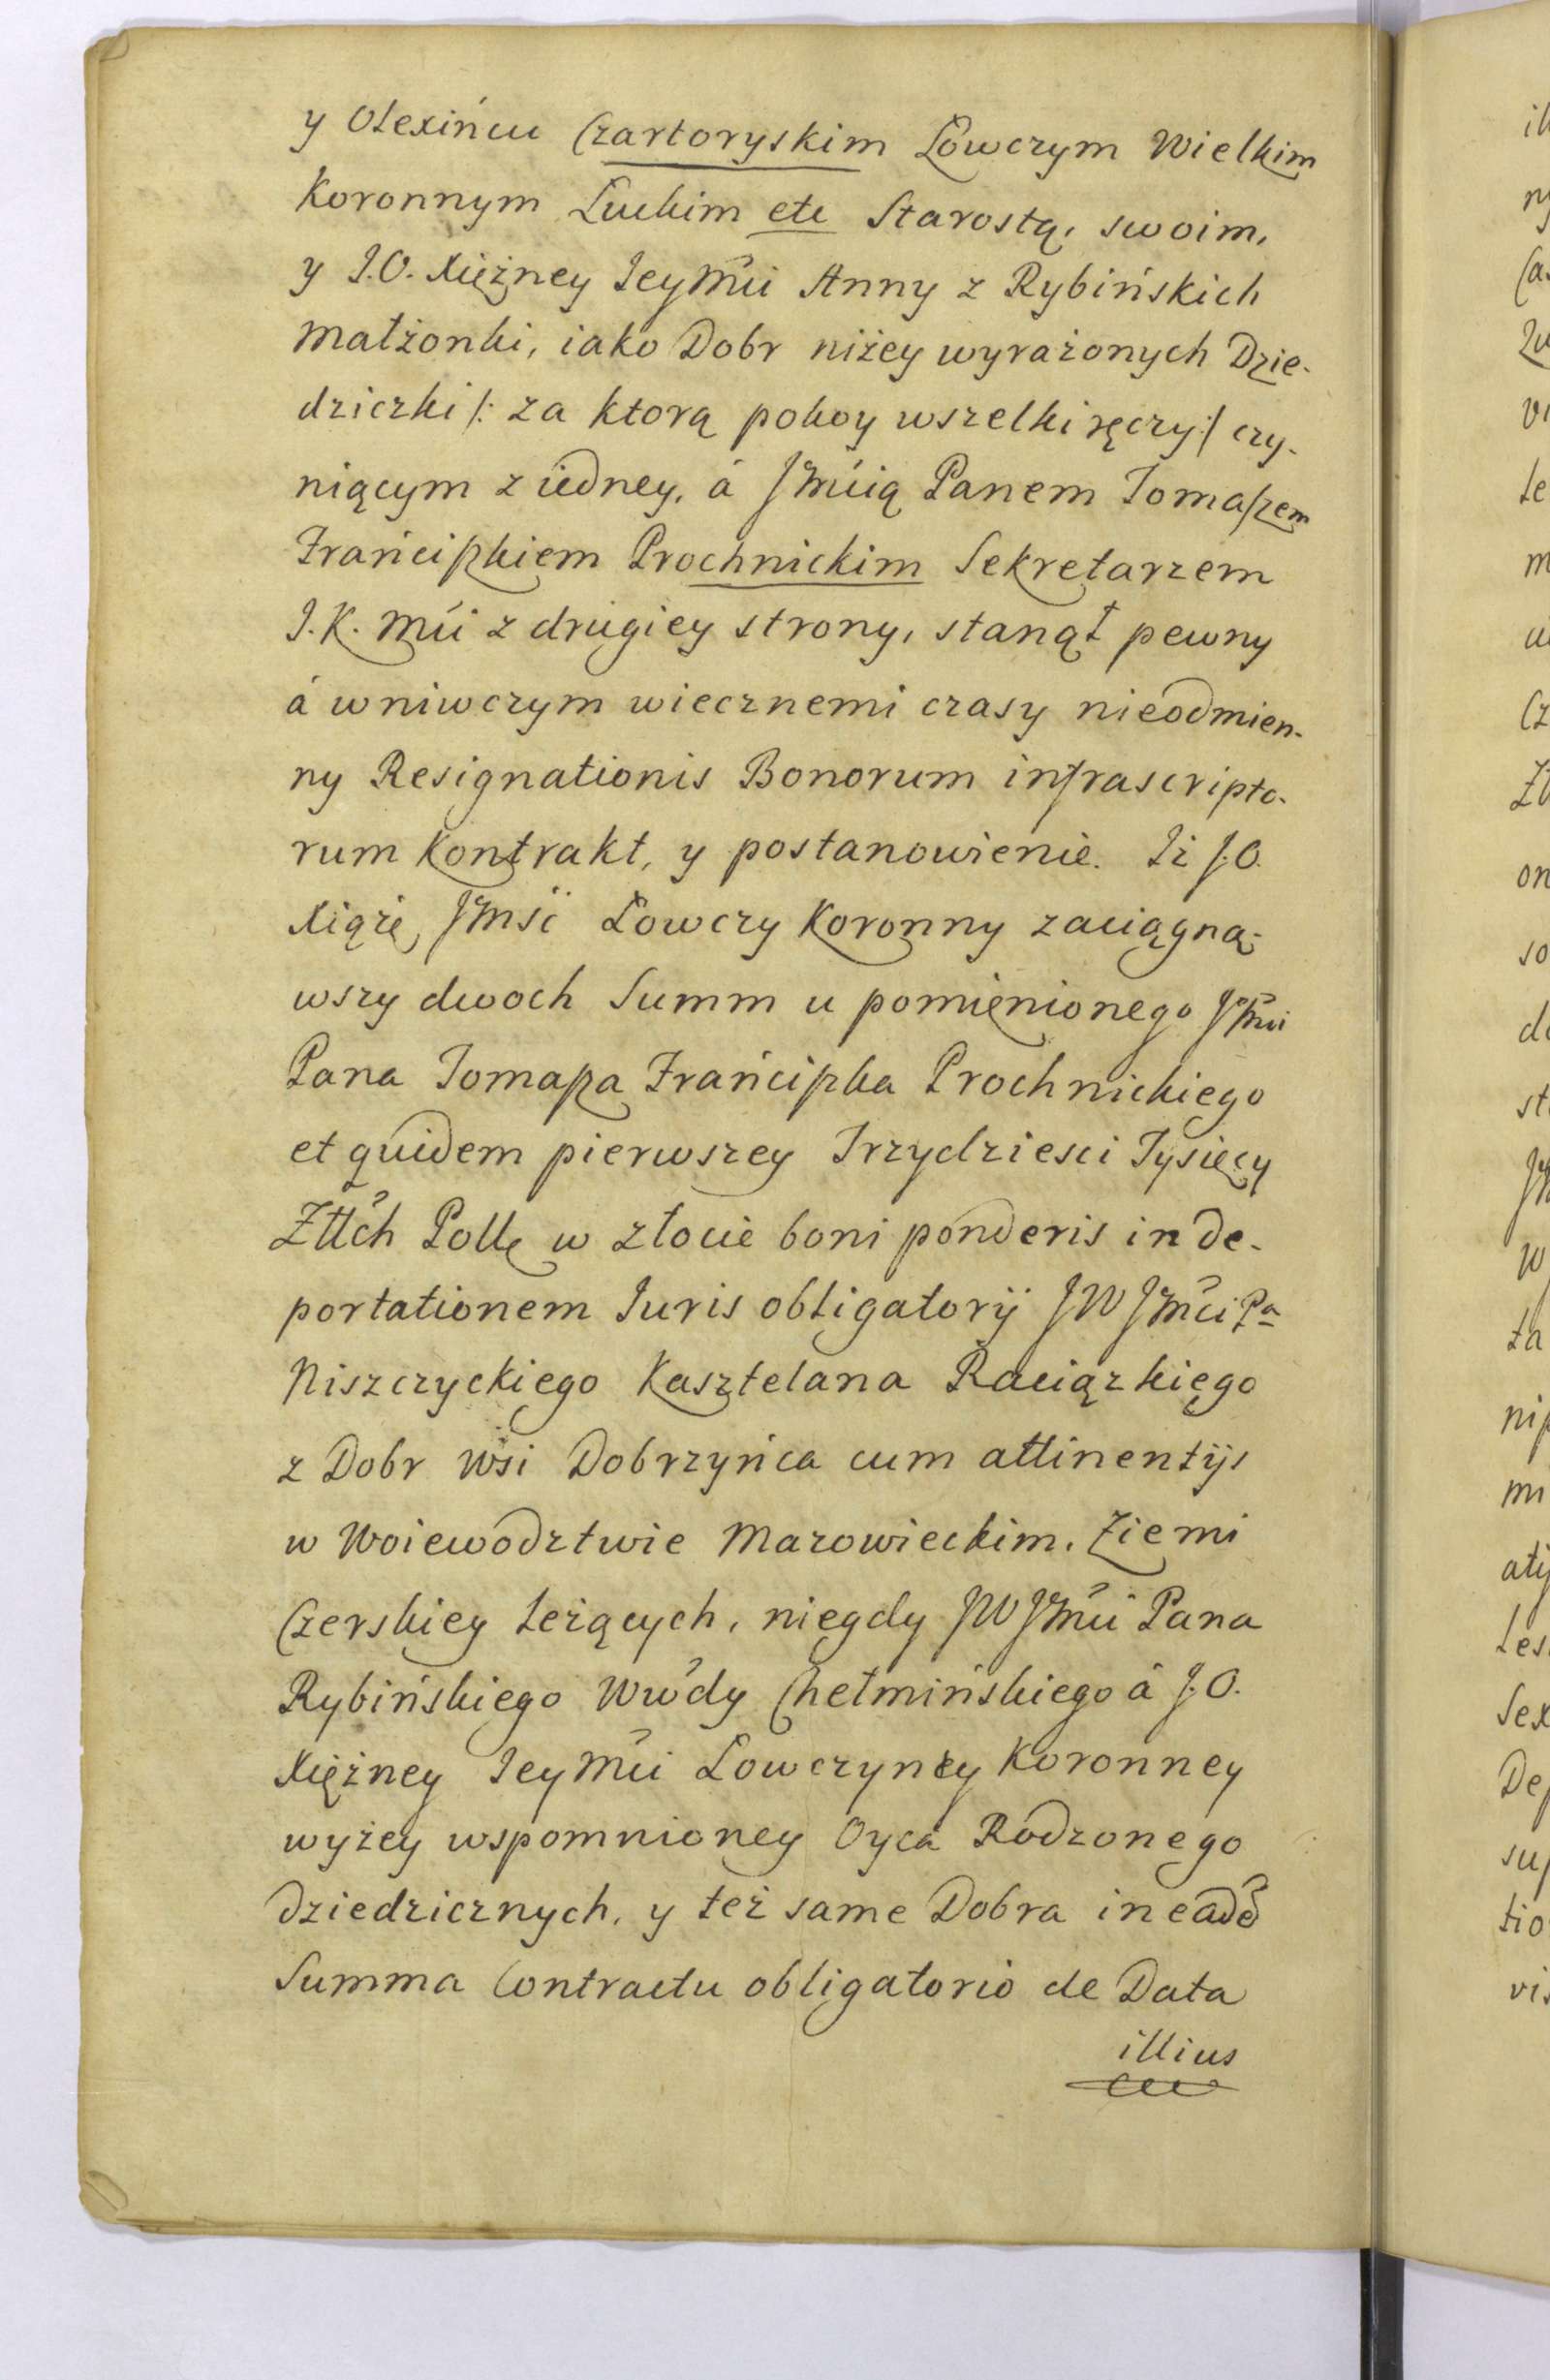 y Olexińcu Czartoryskim Łowczym Wielkim
Koronnym Łuckim etc Starostą, swoim,
y J.O. Xiężney JeyMći Anny z Rybińskich
Małżonki, iako Dobr niżey wyrażonych Dzie-
dziczki /: za ktorą pokoy wszelki ręczy :/ czy-
niącym z iedney, á JMćią Panem Tomaszem
Franciszkiem Prochnickim Sekretarzem
J.K. Mći z drugiey strony, stanął pewny
á wniwczym wiecznemi czasy nieodmien-
ny Resignationis Bonorum infrascripto-
rum Kontrakt, y postanowienie. Iż J.O.
Xiąże JMść Łowczy Koronny zaciągną-
wszy dwoch Summ u pomienionego JMći
Pana Tomasza Franciszka Prochnickiego
et quidem pierwszey Trzydziesci Tysięcy
Złłch Poll w złocie boni ponderis in de-
portationem Juris obligatorij JW JMći Pa
Niszczyckiego Kasztelana Raciązkiego
z Dobr Wsi Dobrzyńca cum attinentijs
w Woiewodztwie Mazowieckim, Ziemi
Czerskiey leżących, niegdy JW JMći Pana
Rybińskiego Wwdy Chełmińskiego á J.O.
Xiężney JeyMći Łowczyney Koronney
wyżey wspomnioney Oyca Rodzonego
dziedzicznych, y też same Dobra in eade
Summa Contractu obligatorio de Data
illius